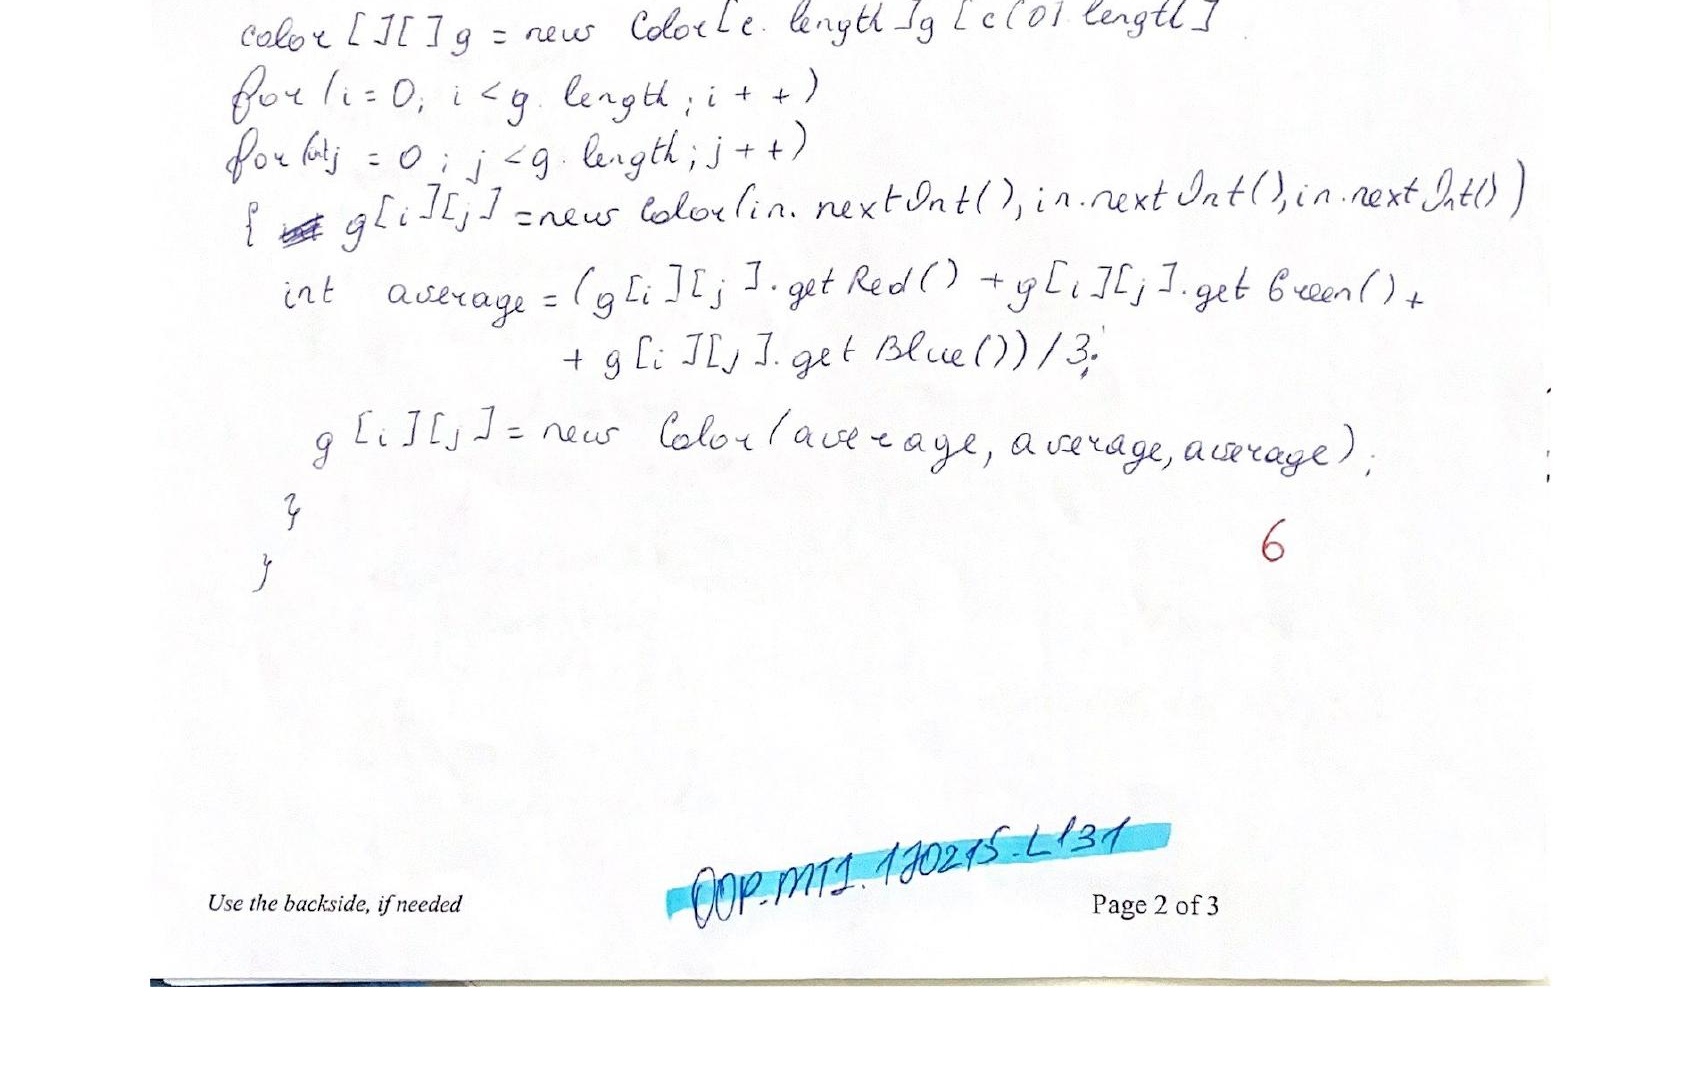 color [ ][ ] g = new Color [c. length ]g [c[0] length]
for (i = 0; i < g. length; i + +)
for (int j = 0; j < g. length; j + +)
{ g[i][j] = new Color (in. nextInt(), in. next Int(), in. next Int())
int average = (g[i][j]. get Red() + g[i][j]. get Green() +
+ g[i][j]. get Blue()) / 3;
g [i][j] = new Color (average, average, average);
}
6
}
OOP.MT1.170215.L131
Use the backside, if needed
Page 2 of 3